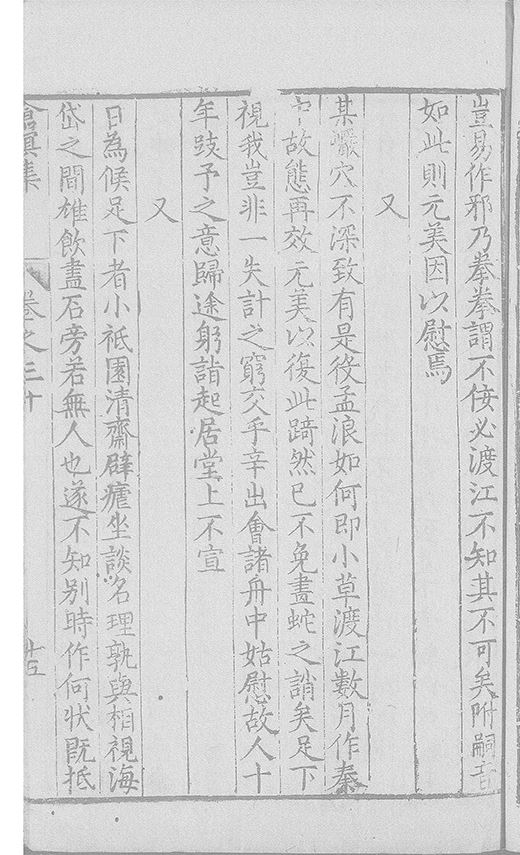 豈易作邪乃拳拳謂不佞必渡江不知其不可矣附嗣音
如此則元美因以慰焉
又
某巖穴不深致有是役孟浪如何即小草渡江數月作秦
中故態再效元美以復此踦然已不免畫蛇之誚矣足下
視我豈非一失計之窮交乎辛出會諸舟中姑慰故人十
年跂予之意歸途躬詣起居堂上不宣
又
日為候足下者小祗園清齋辟瘧坐談名理孰與相視海
岱之間雄飲盡石旁若無人也遂不知别時作何狀既抵
滄溟集 卷之三十 十五